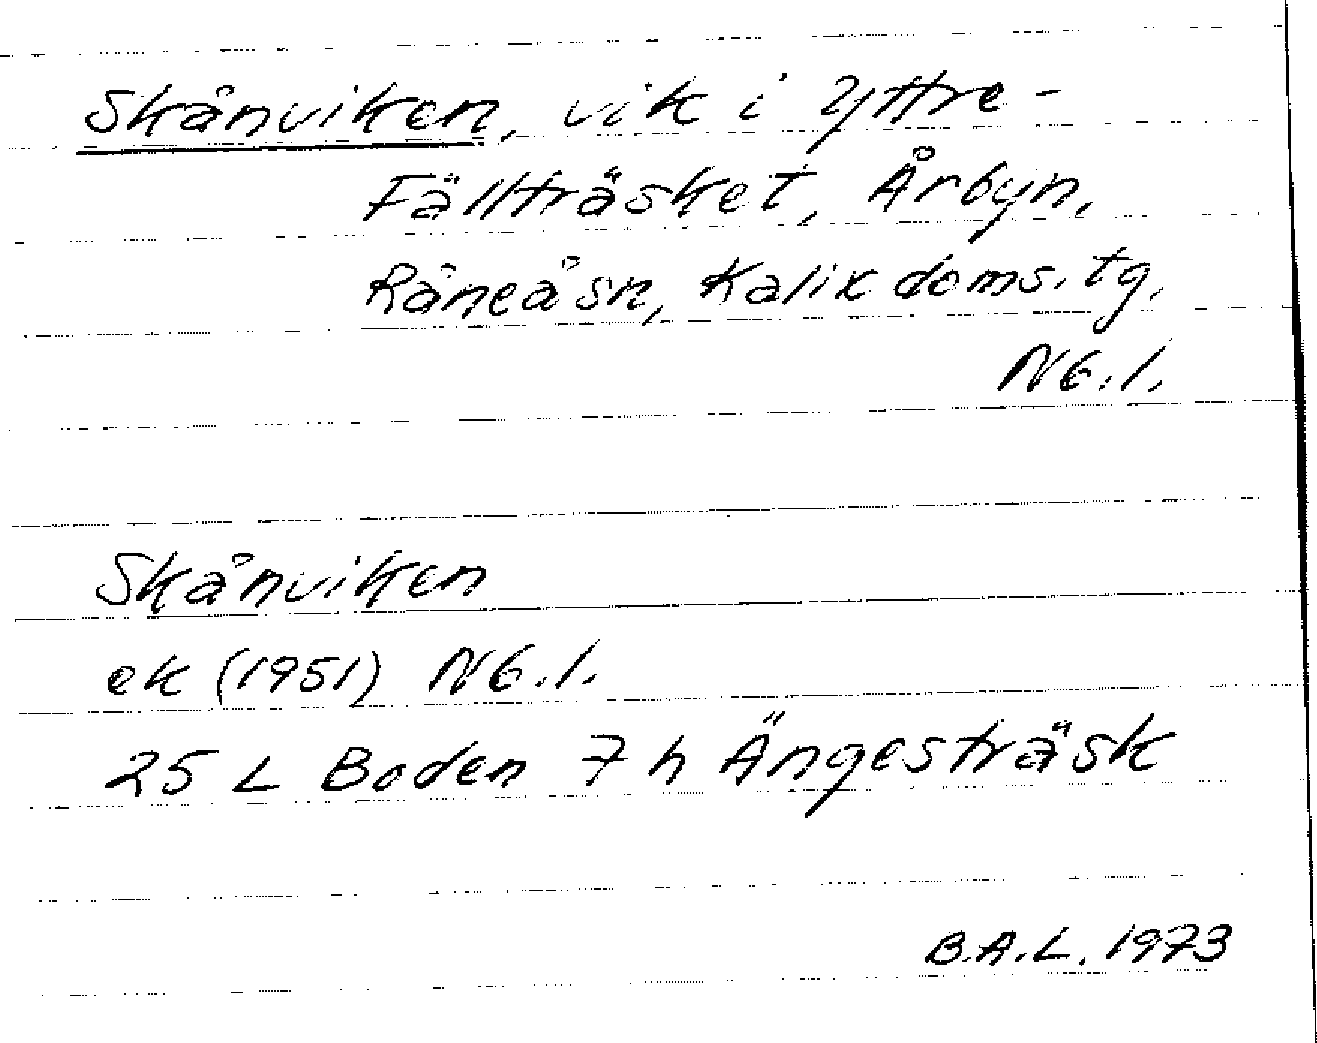 Skånviken, vik i Yttre-
Fällträsket, Årbyn,
Råneå sn, Kalix doms. tg.
N6.1.
Skånviken
ek (1951) N6.1.
25 L Boden 7 h Ängesträsk
B.A.L. 1973